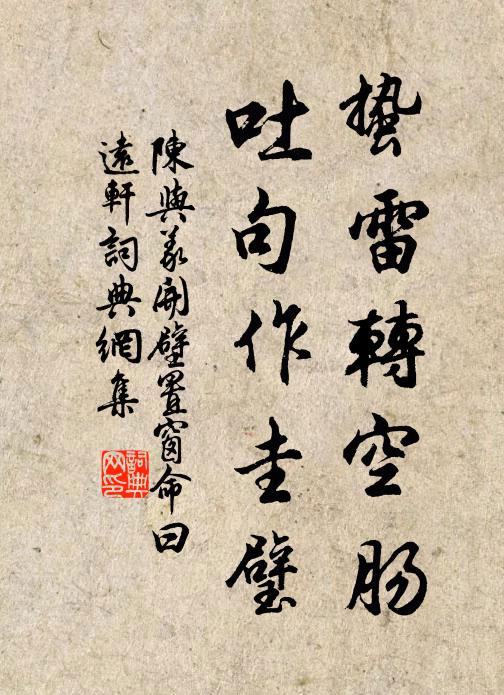 蟄雷轉空腸
吐句作圭璧
陳與義開壁置窗命曰
遠軒詞典網集
詞典網印